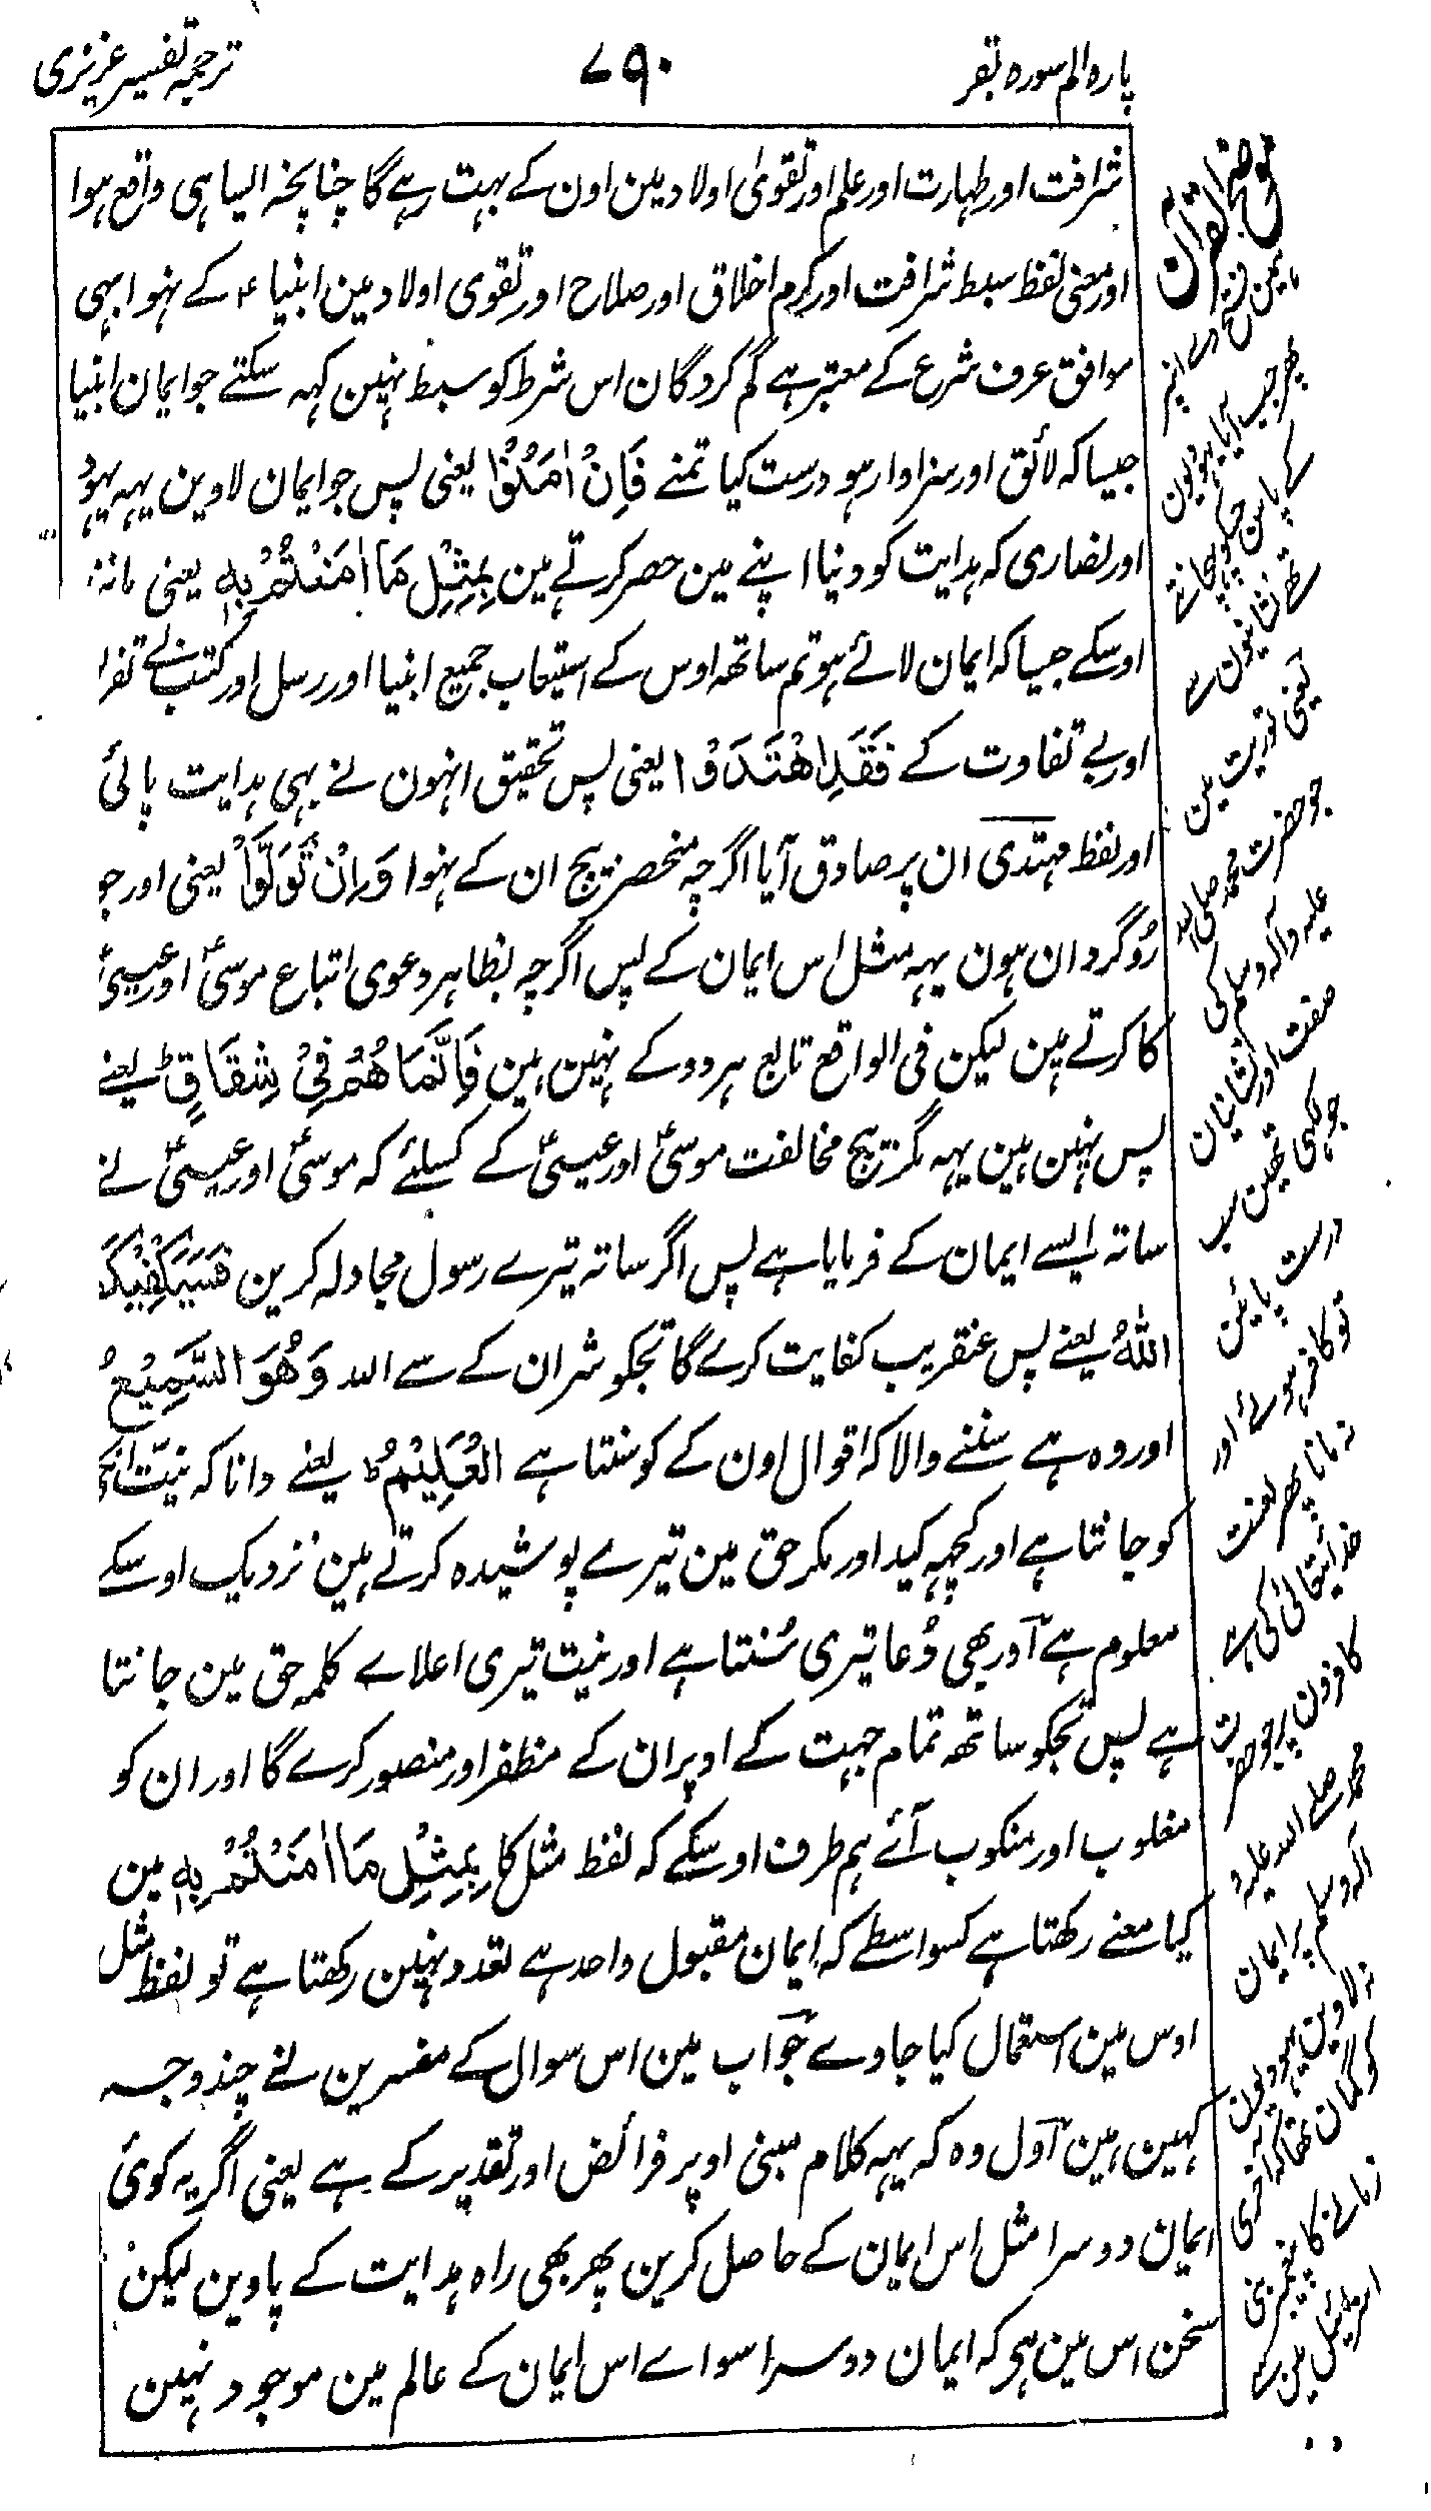 پاره الم سوره بقر
۷۹۰
ترجمہ تفسیر عزیزی
شرافت اور طہارت اور علم اور تقویٰ اولاد مین اون کے بہت رہے گا چنانچہ ایسا ہی واقع ہوا
اور معنی لفظ سبط شرافت اور کرم اخلاق اور صلاح اور تقوی اولاد مین انبیا ء کے نہوا بہی
موافق عرف شرع کے معتبر ہے گم کردگان اس شرط کو سبط نہین کہہ سکتے جو ایمان انبیا
جیسا کہ لائق اور سزاوار ہو درست کیا تمنے فَاِنْ اٰمَنُوْا یعنی پس جو ایمان لاوین یہہ یہود
اور نصاری کہ ہدایت کو دنیا اپنے مین حصر کرتے مین بِمِثْلِ مَا اٰمَنْتُمْ بِهٖ یعنی مانند
اوسکے جیسا کہ ایمان لائے ہو تم ساتھ اوس کے استیعاب جمیع انبیا اور رسل اور کتب بے تفرا
اور بے تفاوت کے فَقَدِ اهْتَدَوْا یعنی پس تحقیق انہون نے بہی ہدایت پائی
اور لفظ مہتدی ان پر صادق آیا اگرچہ منحصر بیچ ان کے نہوا وَاِنْ تَوَلَّوْا یعنی اور جو
رُوگردان ہون یہہ مثل اس ایمان کے پس اگرچہ بظاہر دعوی اتباع موسیٰؑ اور عیسیٰؑ
کا کرتے ہین لیکن فی الواقع تابع ہر دو کے نہین ہین فَاِنَّمَا هُمْ فِیْ شِقَاقٍ ط یعنے
پس نہین ہین یہہ مگر بیچ مخالفت موسیٰؑ اور عیسیٰؑ کے کسلئے کہ موسیٰؑ اور عیسیٰؑ نے
ساتہ ایسے ایمان کے فرمایا ہے پس اگر ساتہ تیرے رسول مجادلہ کرین فَسَيَكْفِيْكَ
اللّٰهُ یعنے پس عنقریب کفایت کرے گا تجکو شر ان کے سے اللہ وَهُوَ السَّمِيْعُ
اور وہ ہے سننے والا کہ اقوال اون کے کو سنتا ہے الْعَلِيْمُ ط یعنے دانا کہ نیت انکی
کو جانتا ہے اور کچہہ کید اور مکر حق مین تیرے پوشیدہ کرتے ہین نزدیک اوسکے
معلوم ہے اور بھی دُعا تیری سُنتا ہے اور نیت تیری اعلاے کلمہ حق مین جانتا
ہے پس تجکو ساتھ تمام جہت کے اوپر ان کے مظفر اور منصور کرے گا اور ان کو
مغلوب اور منکوب آئے ہم طرف اوسکے کہ لفظ مثل کا بِمِثْلِ مَا اٰمَنْتُمْ بِهٖ مین
کیا معنے رکھتا ہے کسواسطے کہ ایمان مقبول واحد ہے تعدد نہین رکھتا ہے تو لفظ مثل
اوس مین استعمال کیا جاوے جواب مین اس سوال کے مفسرین نے چند وجہ
کہین ہین اول وہ کہ یہہ کلام مبنی اوپر فرائض اور تقدیر کے ہے یعنی اگر یہ کوئی
ایمان دوسرا مثل اس ایمان کے حاصل کرین پھر بھی راہ ہدایت کے پاوین لیکن
سخن اس مین ہی کہ ایمان دوسرا سواے اس ایمان کے عالم مین موجود نہین
موضح القرآن
پھر جب آیا یہودیون
کے پاس جسکو پہچانتے
تھے نشانیون سے
یعنی توریت مین
جو حضرت محمد صلی اللہ
علیہ وآلہ وسلم کی
صفت اور نشانیان
جو لکھی تھین سب
درست پائین
تو کافر ہوئے اور
نہ مانا پھر لعنت
خدایتعالیٰ کی ہے
کافرون پر جو حضرت
محمد صلے اللہ علیہ و
آلہ وسلم پر ایمان
نہ لاوین یہودیون
کو گمان تھا کہ آخری
زمانے کا پیغمبر بنی
اسرائیل مین سے